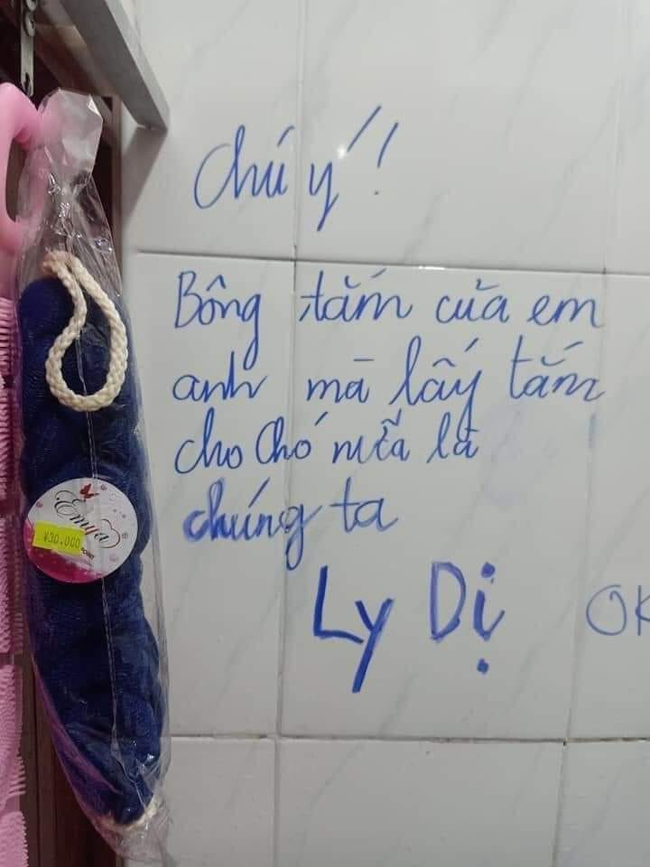 Chú ý!
Bông tắm của em
anh mà lấy tắm
cho chó nữa là
chúng ta
Ly Dị OK
Emya
¥30.000